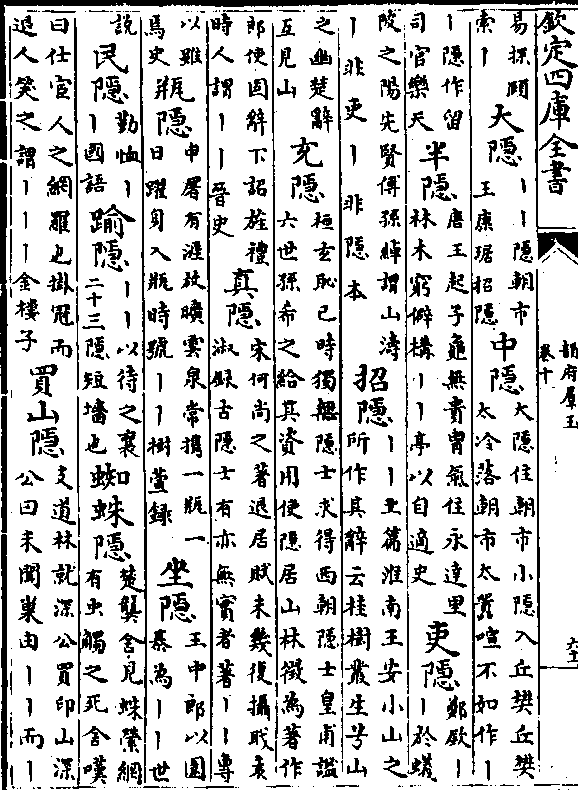 欽定四庫全書
韻府羣玉
卷十
易探賾
索丨
大隱
丨丨隱朝市
王康琚招隱
中隱
大隱住朝市小隱入丘樊丘樊
太冷落朝市太囂喧不如作丨
丨隱作留
司官樂天
半隱
唐王起子龜無貴胄氣住永達里
林木窮僻構丨丨亭以自適史
吏隱
鄭欽丨
丨於蟻
陂之陽先賢傳孫綽謂山濤
丨非吏丨非隱本
招隱
丨丨士篇淮南王安小山之
所作其辭云桂樹叢生兮山
之幽楚辭
互見山
充隱
桓玄恥已時獨無隱士求得西朝隱士皇甫謐
六世孫希之給其資用使隱居山林徵為著作
郎使固辭下詔旌禮
時人謂丨丨晉史
真隱
宋何尚之著退居賦未幾復攝職袁
淑録古隱士有亦無實者著丨丨專
以雖
馬史
瓶隱
申屠有涯放曠雲泉常携一瓶一
日躍身入瓶時號丨丨樹萱録
坐隱
王中郎以圍
棊為丨丨世
說
民隱
勤恤丨
丨國語
踰隱
丨丨以待之襄
二十三隱短墻也
蜘蛛隱
楚龔舍見蛛縈網
有虫觸之死舍嘆
曰仕宦人之網羅也掛冠而
退人笑之謂丨丨丨金樓子
買山隱
支道林就深公買印山深
公曰未聞巢由丨丨而丨